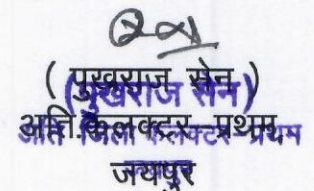 ( पुखराज सेन )
(पुखराज सेन)
अति. कलक्टर-प्रथम,
अति जिला कलक्टर-प्रथम
जयपुर